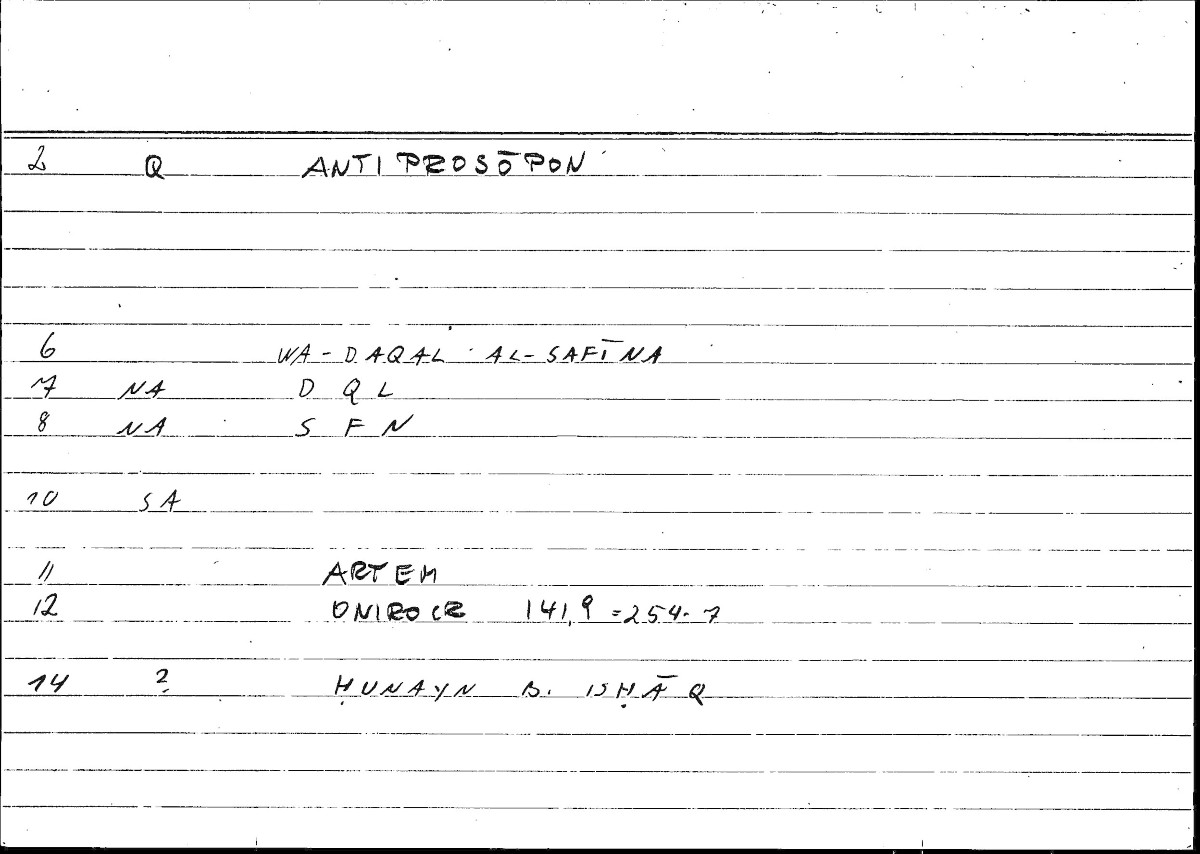 2 Q ANTIPROSŌPON
6 WA-DAQAL AL-SAFĪNA
7 NA D Q L
8 NA S F N
10 SA
11 ARTEM
12 ONIROCR 141,9 = 254.7
14 ? ḤUNAYN B. ISḤĀQ